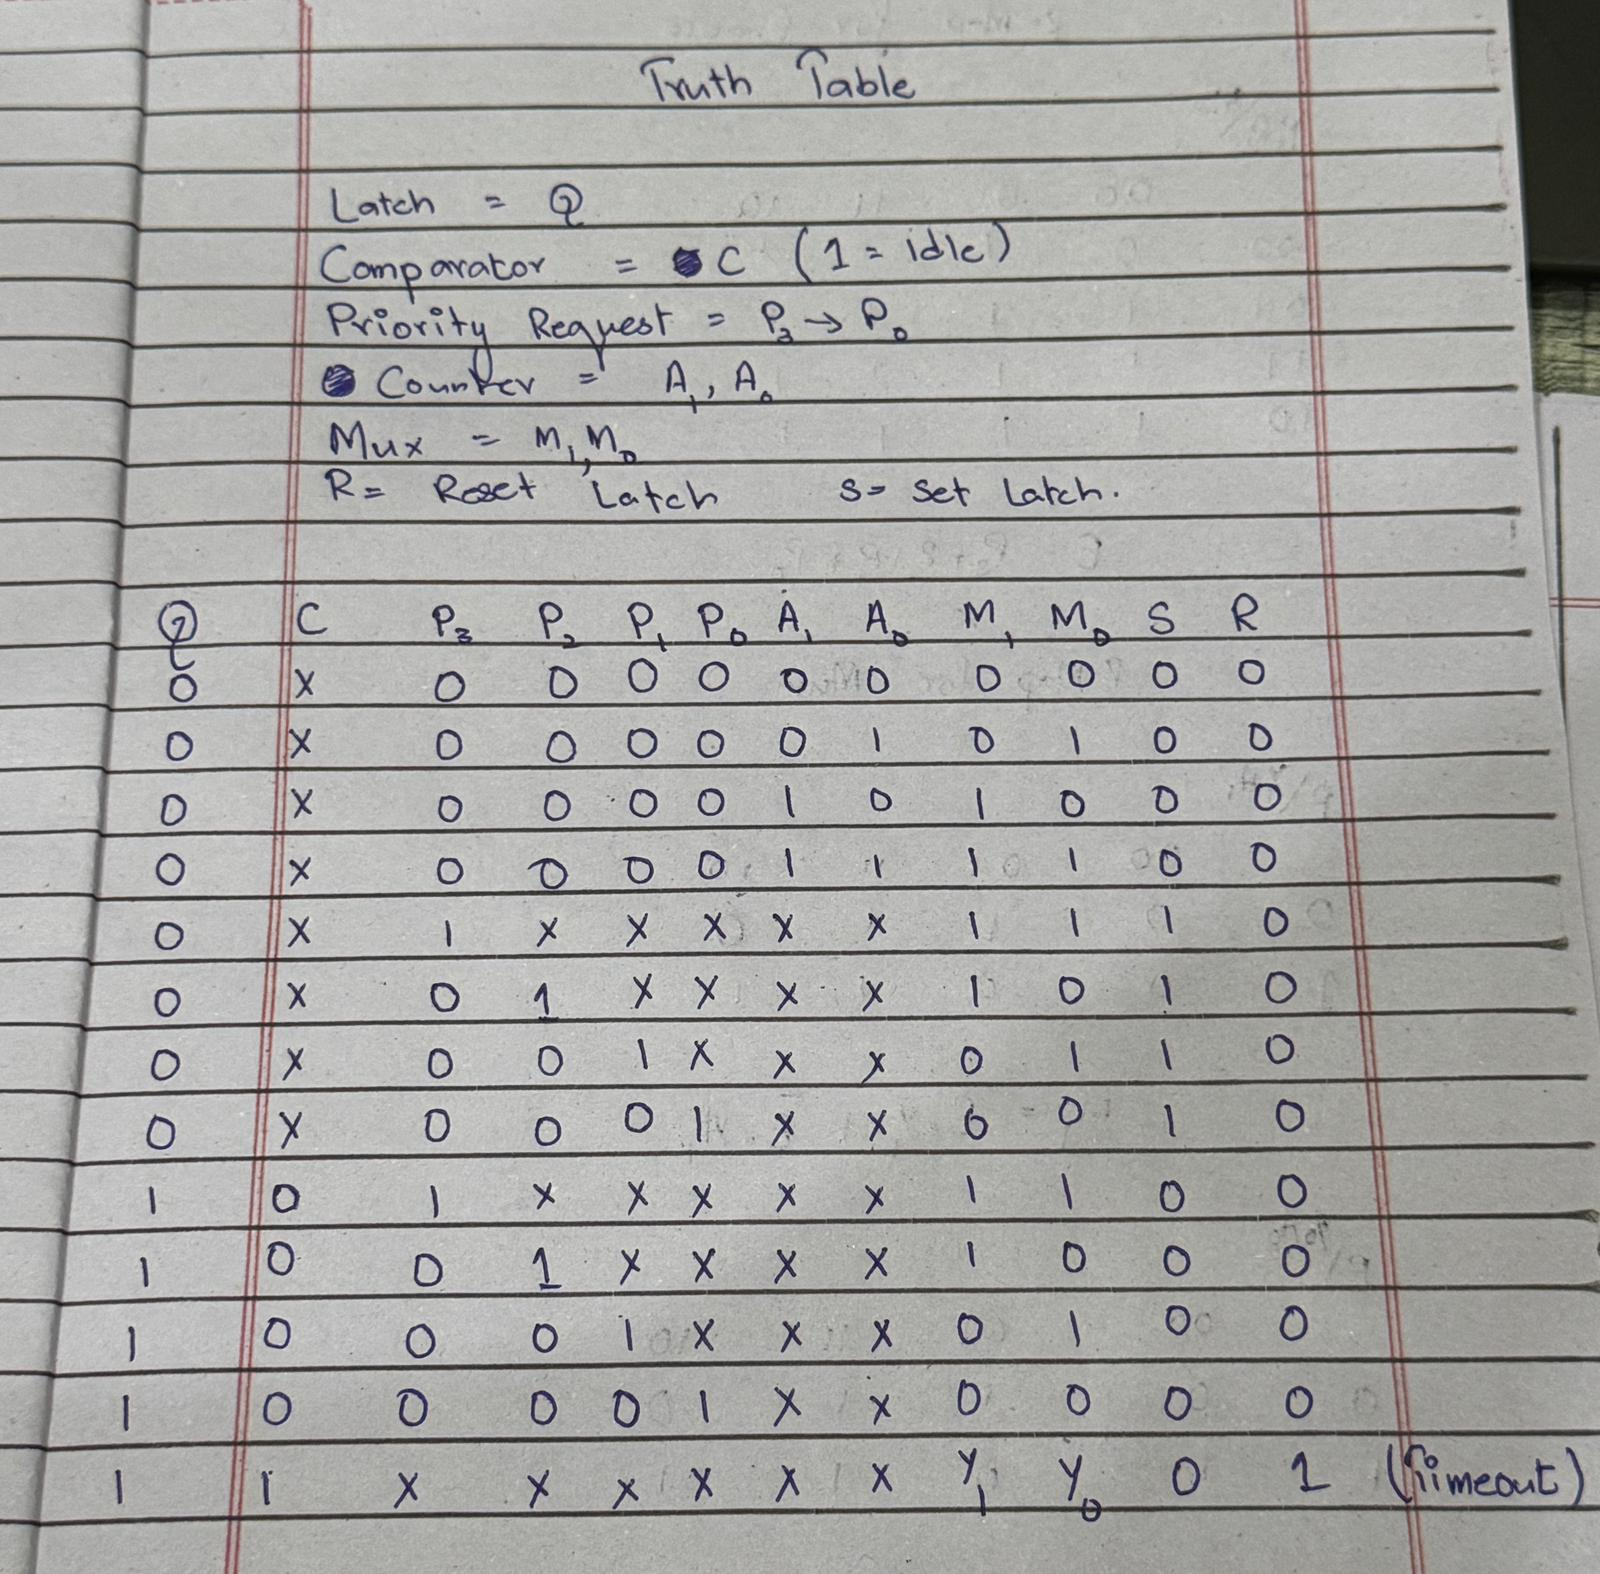 Truth Table
Latch = Q
Comparator = C (1 = idle)
Priority Request = P₃ → P₀
Counter = A₁, A₀
Mux = M₁, M₀
R = Reset Latch S = Set Latch.
Q C P₃ P₂ P₁ P₀ A₁ A₀ M₁ M₀ S R
0 X 0 0 0 0 0 0 0 0 0 0
0 X 0 0 0 0 0 1 0 1 0 0
0 X 0 0 0 0 1 0 1 0 0 0
0 X 0 0 0 0 1 1 1 1 0 0
0 X 1 X X X X X 1 1 1 0
0 X 0 1 X X X X 1 0 1 0
0 X 0 0 1 X X X 0 1 1 0
0 X 0 0 0 1 X X 0 0 1 0
1 0 1 X X X X X 1 1 0 0
1 0 0 1 X X X X 1 0 0 0
1 0 0 0 1 X X X 0 1 0 0
1 0 0 0 0 1 X X 0 0 0 0
1 1 X X X X X X Y₁ Y₀ 0 1 (Timeout)